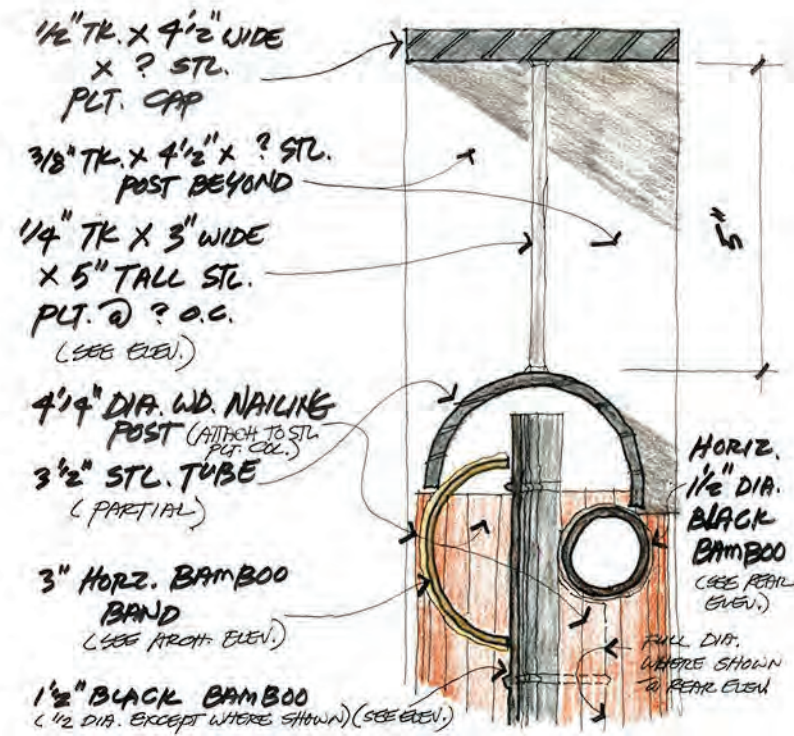 1/2" TK. X 4 1/2" WIDE
X ? STL.
PLT. CAP
3/8" TK. X 4 1/2" X ? STL.
POST BEYOND
1/4" TK X 3" WIDE
X 5" TALL STL.
PLT. @ ? O.C.
(SEE ELEV.)
4 1/4" DIA. WD. NAILING
POST (ATTACH TO STL.
PLT. COL.)
3 1/2" STL. TUBE
(PARTIAL)
3" HORZ. BAMBOO
BAND
(SEE ARCH. ELEV.)
1 1/2" BLACK BAMBOO
(1/2 DIA. EXCEPT WHERE SHOWN) (SEE ELEV.)
5"
HORIZ.
1 1/2" DIA.
BLACK
BAMBOO
(SEE REAR
ELEV.)
FULL DIA.
WHERE SHOWN
@ REAR ELEV.